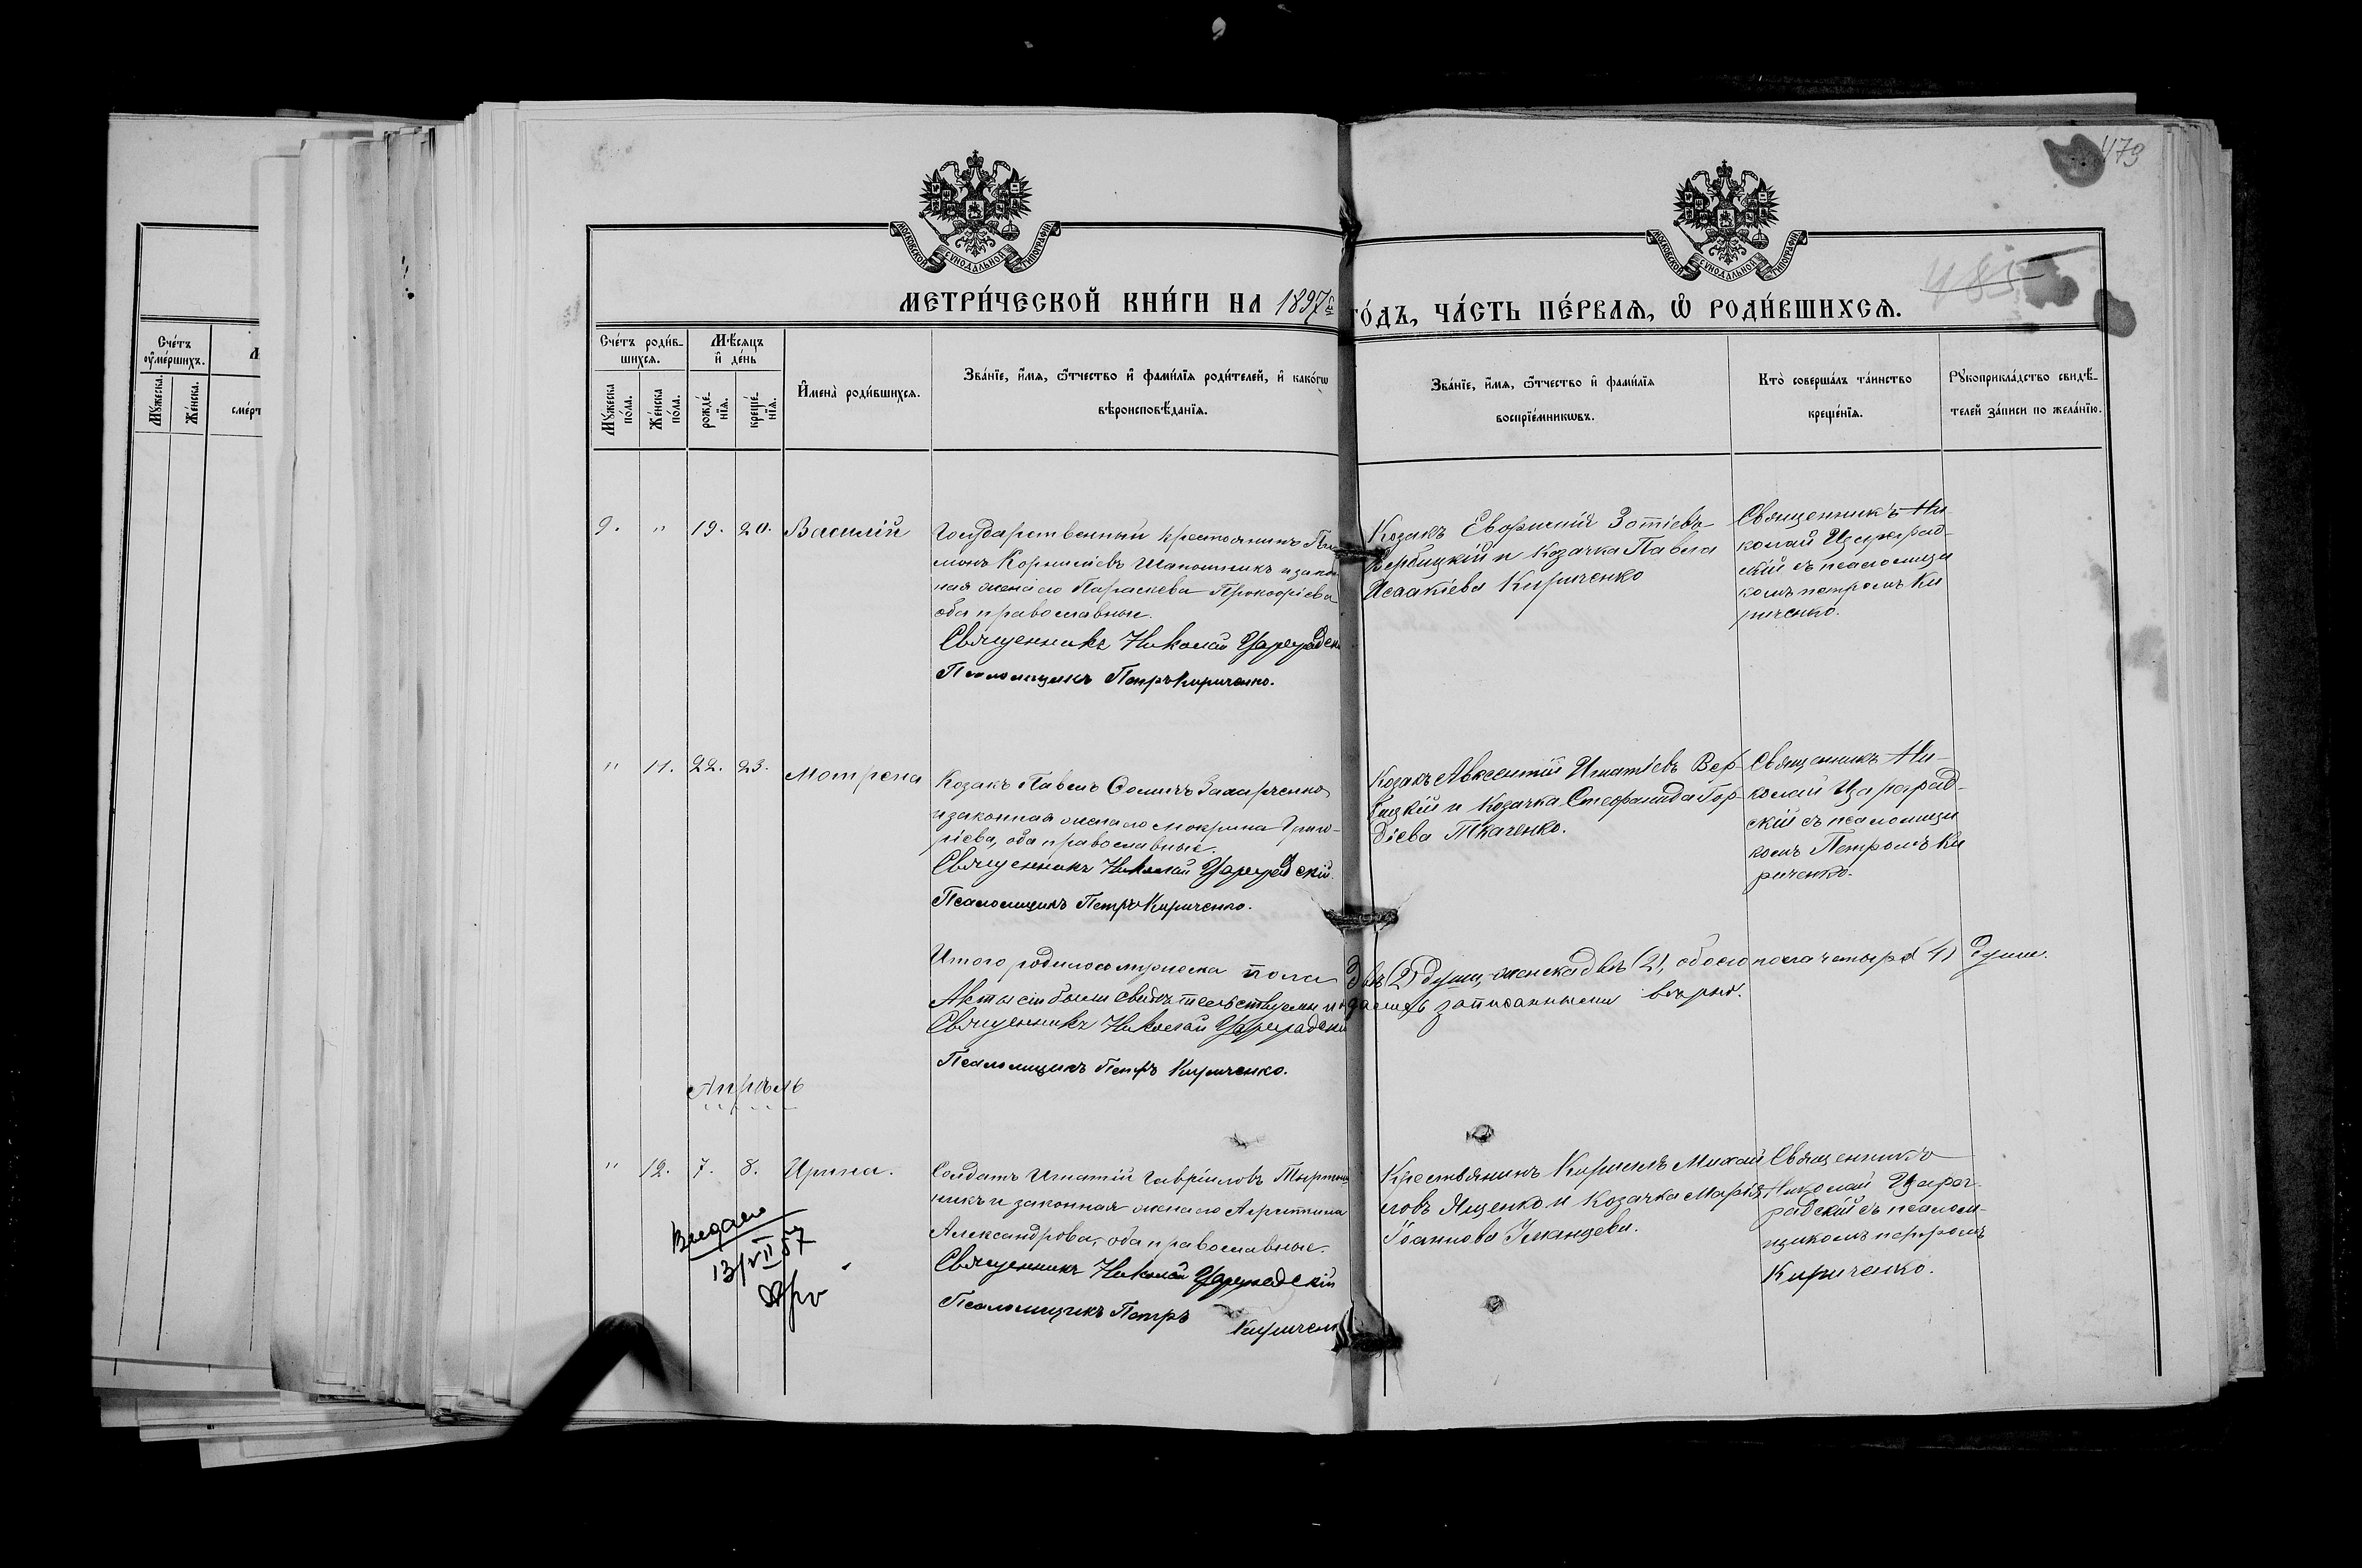 479
485
МОСКОВСКОЙ СУНОДАЛЬНОЙ ТИПОГРАФІИ
МОСКОВСКОЙ СУНОДАЛЬНОЙ ТИПОГРАФІИ
МЕТРИ́ЧЕСКОЙ КНИ́ГИ НА 1897й го́дъ, ча́сть пе́рваѧ, ѽ роди́вшихсѧ.
Сче́тъ оу҆ме́ршихъ.
Мꙋ́жеска.
Же́нска.
Сче́тъ роди́в-
шихсѧ.
Мꙋ́жеска по́ла.
Же́нска по́ла.
Мѣ́сѧцъ
и҆ де́нь
рожде́-
нїѧ.
креще́-
нїѧ.
И҆мена̀ роди́вшихсѧ.
Зва́нїе, и҆́мѧ, ѻ҆́тчество и҆ фами́лїѧ роди́телей, и҆ како́гѡ
вѣроисповѣ́данїѧ.
Зва́нїе, и҆́мѧ, ѻ҆́тчество и҆ фами́лїѧ
воспрїе́мникѡвъ.
Кто̀ соверша́лъ та́инство
креще́нїѧ.
Рꙋкоприкла́дство свидѣ́-
телей за́писи по жела́нїю.
9. " 19. 20. Василій
Государственный крестьянинъ
монъ Корнилієвъ Шапошникъ и закон
ная жена его Параскева Прокофіева
оба православные.
Священникъ Николай Цареградскі
Псаломщикъ Петръ Кириченко.
Козакъ Евфимій Зотіевъ
Вербицкій и козачка Павла
Исаакіева Кириченко
Священникъ Ни
колай Цареград-
скій съ псаломщи
комъ петромъ Ки
риченко.
" 11. 22. 23. Мотрона
Козакъ Павелъ Захарченко
и законная жена его Мокрина Григо-
ріева, оба православные.
Священникъ Николай Цареградскій.
Псаломщикъ Петръ Кириченко.
Козакъ Авксентій Игнатіевъ Вер-
бицкій и козачка Стефанида Гор-
діева Ткаченко.
Священникъ Ни-
колай Цареград-
скій съ псаломщи
комъ Петромъ Ки
риченко.
Итого родилось мужеска пола двѣ (2) души, женска двѣ (2), обоего пола четыре (4) души.
Акты сіи были свидѣтельствуемы и записанными вѣрно.
Священникъ Николай Цареградскі
Псаломщикъ Петръ Кириченко.
Апрѣль
" 12. 7. 8. Ирина.
Солдатъ Игнатій Гавріиловъ
никъ и законная жена его Агриппина
Александрова, оба православные.
Священникъ Николай Цареградскій
Псаломщикъ Петръ Кириченк
Крестьянинъ Кириллъ Михаи
ловъ Ященко и козачка Марія
Іоаннова Уманцева.
Священникъ
Николай Царег-
радскій съ псалом-
щикомъ петромъ
Кириченко.
Видано
13/VII 57